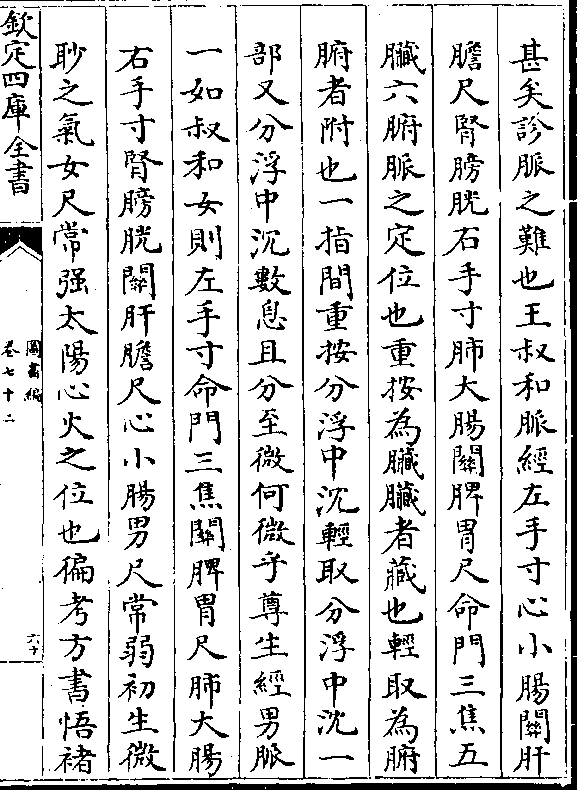 甚矣診脈之難也王叔和脈經左手寸心小腸關肝
膽尺腎膀胱右手寸肺大腸關脾胃尺命門三焦五
臟六腑脈之定位也重按為臟臟者藏也輕取為腑
腑者附也一指間重按分浮中沉輕取分浮中沈一
部又分浮中沉數息且分至微何微乎尊生經男脈
一如叔和女則左手寸命門三焦關脾胃尺肺大腸
右手寸腎膀胱關肝膽尺心小腸男尺常弱初生微
眇之氣女尺常强太陽心火之位也徧考方書悟褚
欽定四庫全書
圖書編
卷七十二
六十